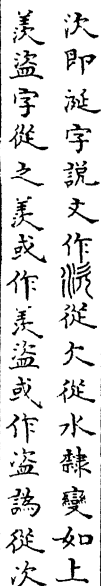 㳄即涎字說文作㳄從欠從水隸變如上
羨盜字從之羨或作羡盜或作盗譌從次